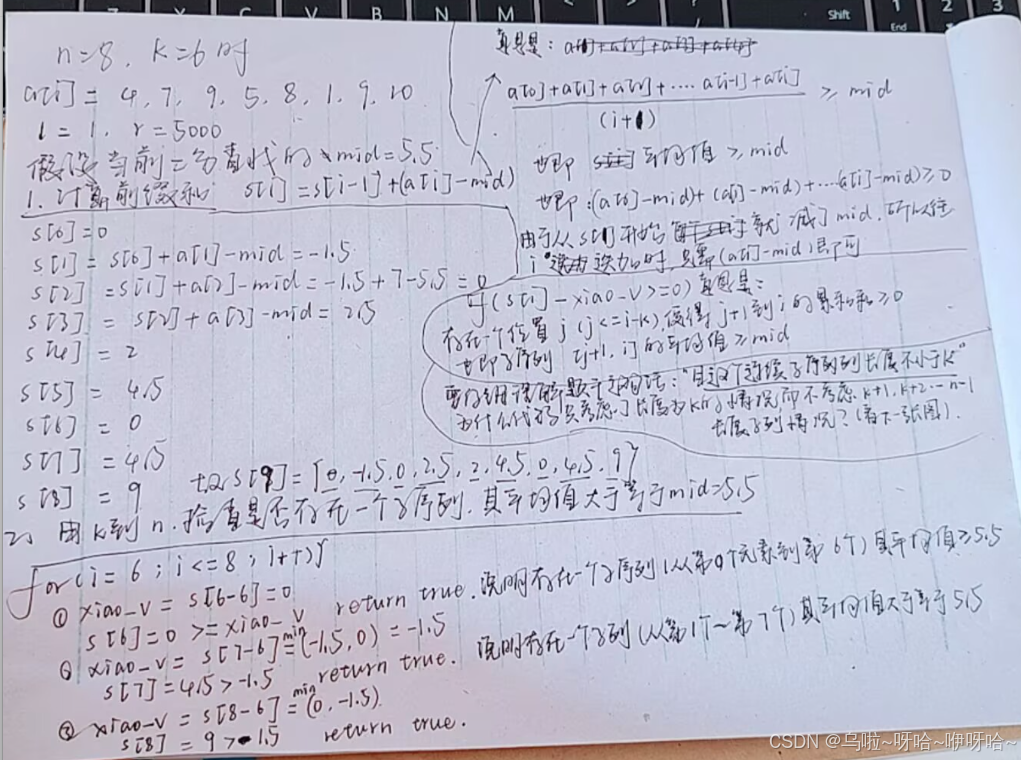 n=8, k=6时
a[i]= 4, 7, 9, 5, 8, 1, 9, 10
l=1, r=5000
假设当前二分查找的 mid=5.5
1. 计算前缀和: s[i]=s[i-1]+(a[i]-mid)
s[0]=0
s[1]=s[0]+a[1]-mid=-1.5
s[2]=s[1]+a[2]-mid=-1.5+7-5.5=0
s[3]=s[2]+a[3]-mid=2.5
s[4]=2
s[5]=4.5
s[6]=0
s[7]=4.5
s[8]=9
s[9]=[0,-1.5,0,2.5,2,4.5,0,4.5,9]
意思是:
a[0]+a[1]+a[2]+....a[i-1]+a[i]
(i+1)
≥mid
也即 平均值≥mid
也即:(a[0]-mid)+(a[1]-mid)+...(a[i]-mid)≥0
由于从s[1]开始 就减了mid,所以在
i 时,只需(a[i]-mid)即可
if(s[i]-xiao-v>=0)意思是:
存在一个位置j(j<=i-k)使得j+1到i的累和≥0
也即子序列[j+1,i]的平均值≥mid
要仔细理解题干这句话:"且这个连续子序列长度不小于k"
为什么代码只考虑了长度为k的情况而不考虑k+1,k+2...n-1
长度序列情况?(看下一张图).
2、用k到n,检查是否存在一个子序列,其平均值大于等于mid=5.5
for(i=6;i<=8;i++){
① xiao-v=s[6-6]=0
s[6]=0>=xiao-v return true.说明存在一个子序列(从第0个元素到第6个)其平均值≥5.5
xiao-v=s[7-6]=min(-1.5,0)=-1.5
s[7]=4.5>-1.5 return true. 说明存在一个子列(从第1个~第7个)其平均值大于等于5.5
xiao-v=s[8-6]=min(0,-1.5)
s[8]=9>-1.5 return true.
Shift
End
1
2
3
Z
X
C
V
B
N
M
CSDN @乌啦~呀哈~咿呀哈~